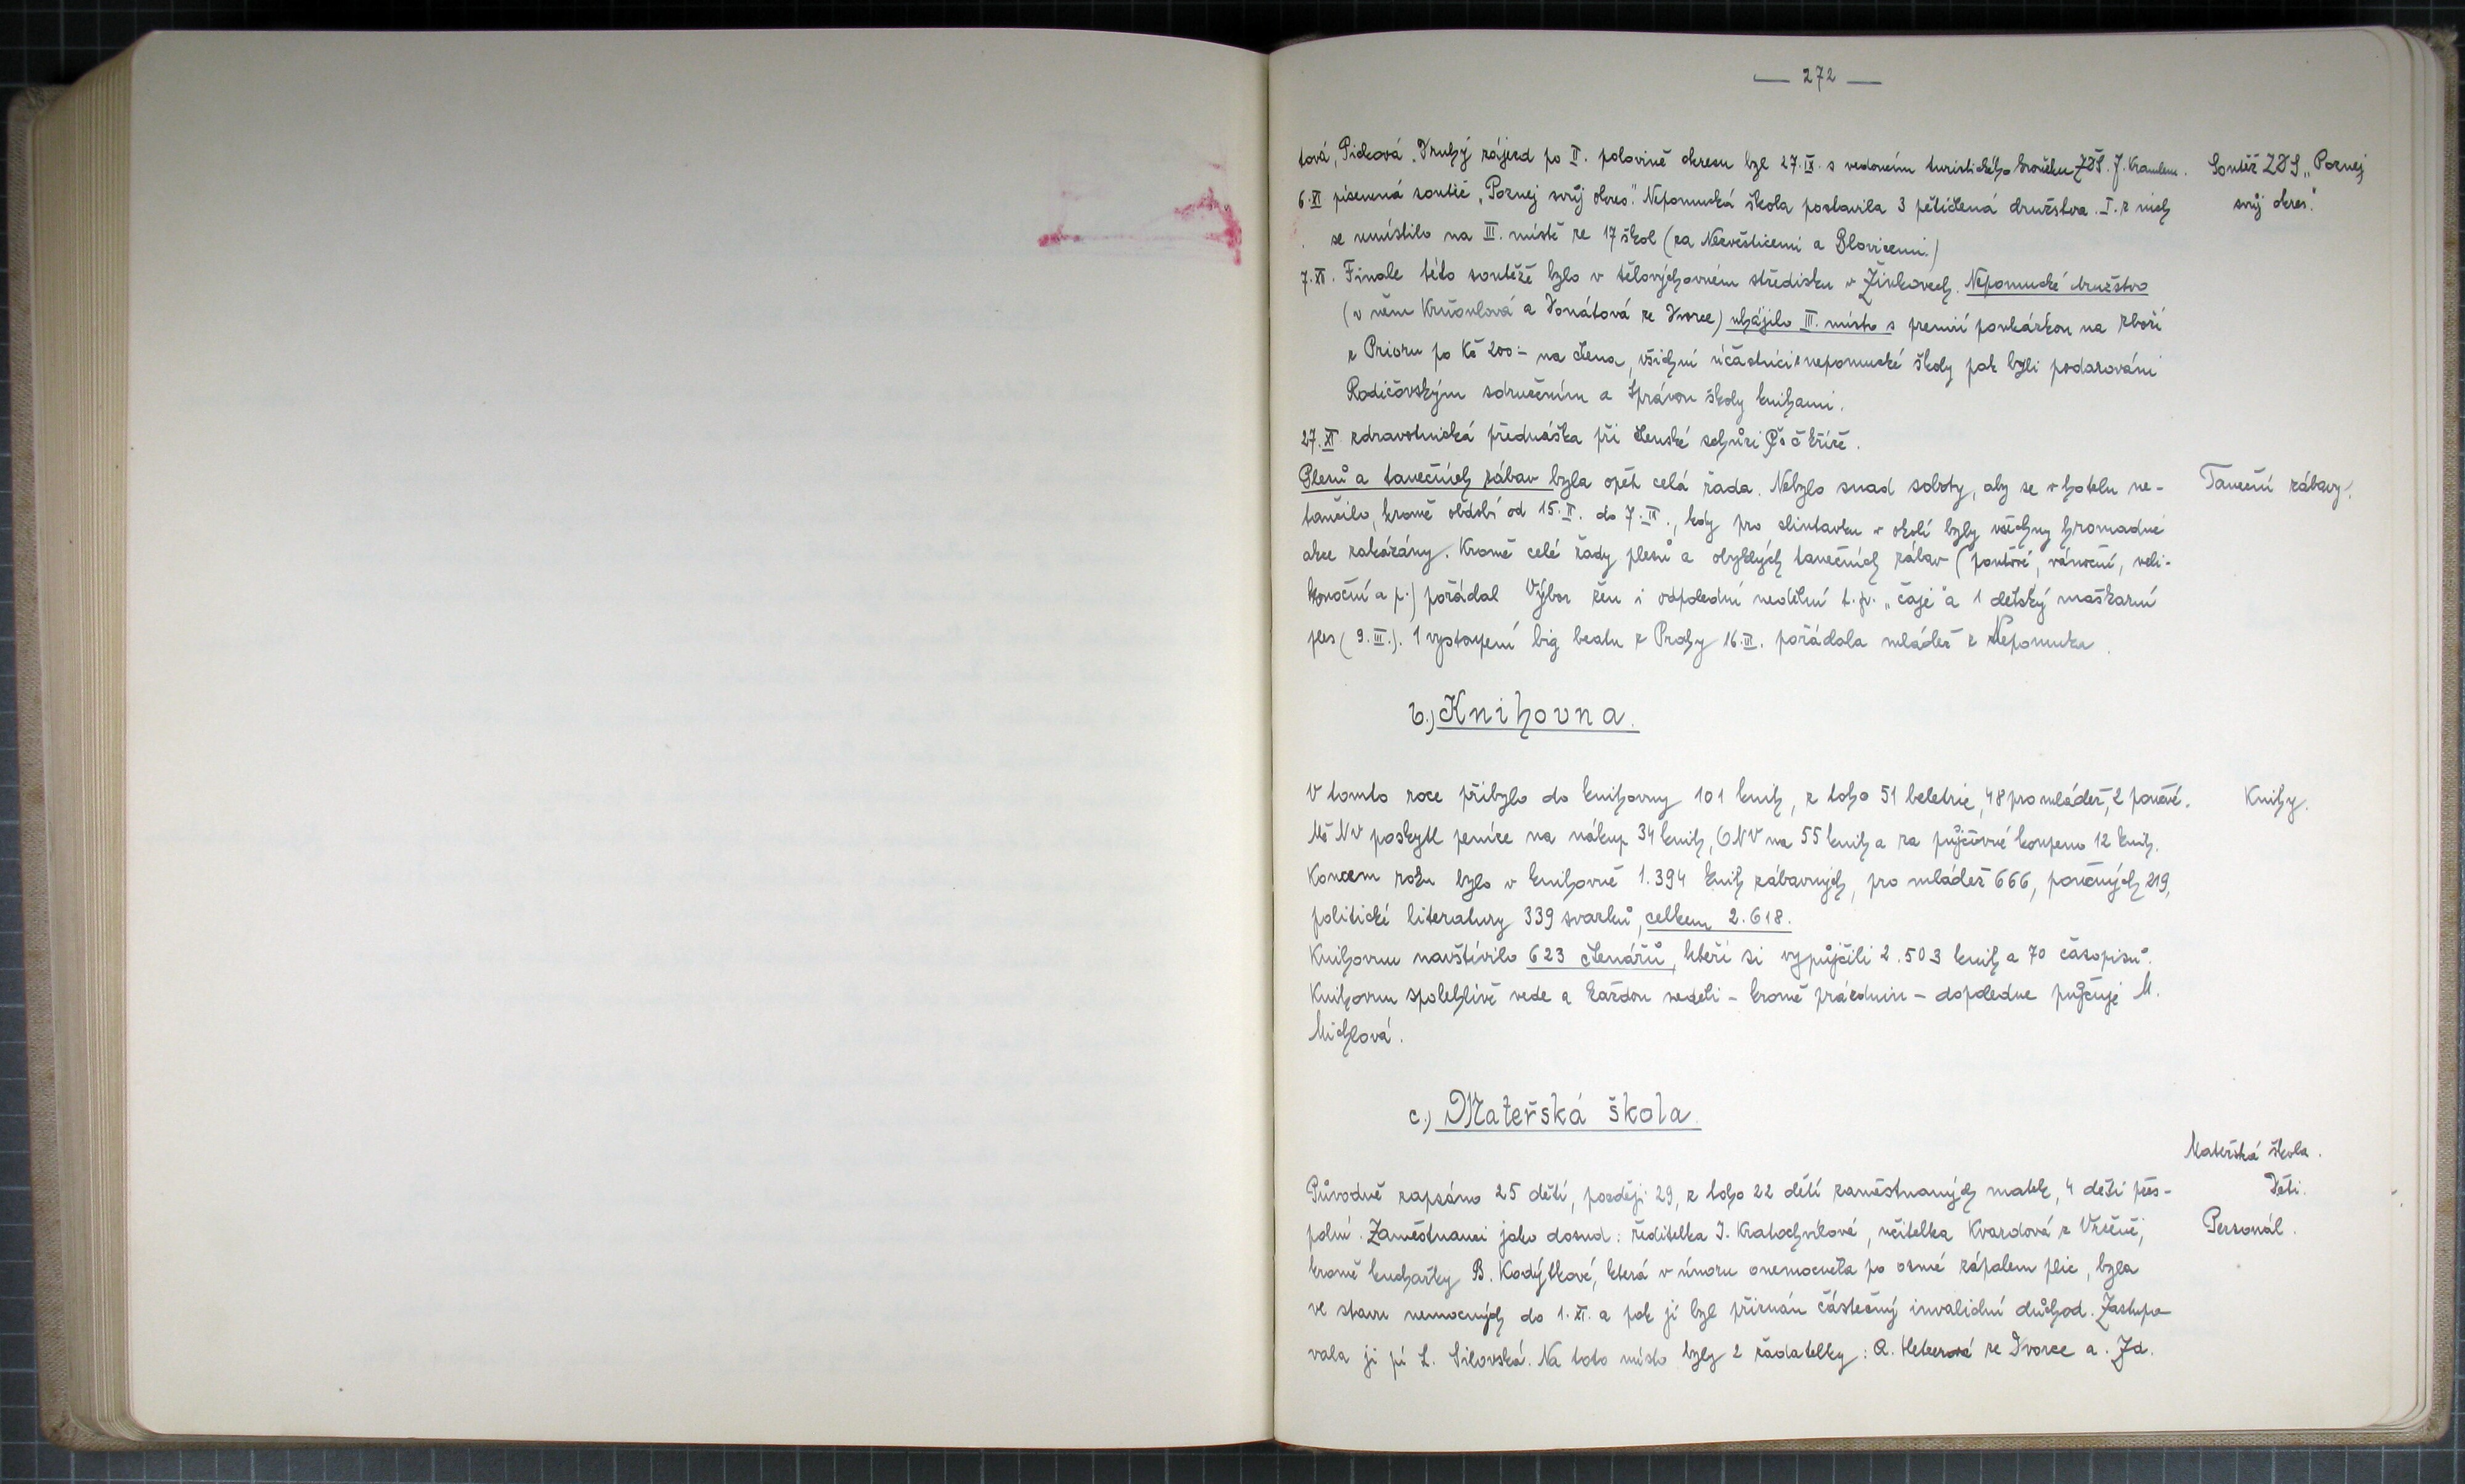 — 272 —
tová, Picková. Druhý zájezd po II. polovině okresu byl 27.IX. s vedoucím turistického kroužku ZDŠ. J. Kramlem.
Soutěž ZDŠ „Poznej
svůj okres".
6.XI písemná soutěž „Poznej svůj okres". Nepomucká škola postavila 3 pětičlená družstva. I. z nich
se umístilo na III. místě ze 17 škol (za Nezvěsticemi a Blovicemi.)
7.XI. Finale této soutěže bylo v tělovýchovném středisku v Žinkovech. Nepomucké družstvo
(v něm Kručonlová a Donátová ze Dvorce) uhájilo III. místo s premií poukázkou na zboží
z Prioru po Kč 200.- na člena, všichni účastníci z nepomucké školy pak byli podarováni
Rodičovským sdružením a Správou školy knihami.
27.XI zdravotnická přednáška při členské schůzi Čs č kříže.
Plesů a tanečních zábav byla opět celá řada. Nebylo snad soboty, aby se v hotelu ne-
Taneční zábavy.
tančilo, kromě období od 15.II. do 7.III., kdy pro slintavku v okolí byly všechny hromadné
akce zakázány. Kromě celé řady plesů a obyklých tanečních zábav (pouťové, vánoční, veli-
konoční a p.) pořádal Výbor žen i odpolední nedělní t. zv. „čaje" a 1 dětský maškarní
ples (9.III.). 1 vystoupení big beatu z Prahy 16.III. pořádala mládež z Nepomuka.
b.) Knihovna.
V tomto roce přibylo do knihovny 101 knih, z toho 51 beletrie, 48 pro mládež, 2 poučné.
Knihy.
Mě NV poskytl peníze na nákup 34 knih, ONV na 55 knih a za půjčovné koupeno 12 knih.
Koncem roku bylo v knihovně 1.394 knih zábavných, pro mládež 666, poučných 219,
politické literatury 339 svazků, celkem 2.618.
Knihovnu navštívilo 623 čtenářů, kteří si vypůjčili 2.503 knih a 70 časopisů.
Knihovnu spolehlivě vede a každou neděli – kromě prázdnin – dopoledne půjčuje M.
Michlová.
c.) Mateřská škola.
Mateřská škola.
Původně zapsáno 25 dětí, později 29, z toho 22 dětí zaměstnaných matek, 4 děti přes-
Děti.
polní. Zaměstnanci jako dosud: ředitelka J. Kratochvílová, učitelka Kvardová z Vrčeně,
Personál.
kromě kuchařky B. Kodýtkové, která v únoru onemocněla po osmé zápalem plic, byla
ve stavu nemocných do 1.XI. a pak jí byl přiznán částečný invalidní důchod. Zastupo
vala ji pí L. Silovská. Na toto místo byly 2 žadatelky: A. ze Dvorce a. Zd.